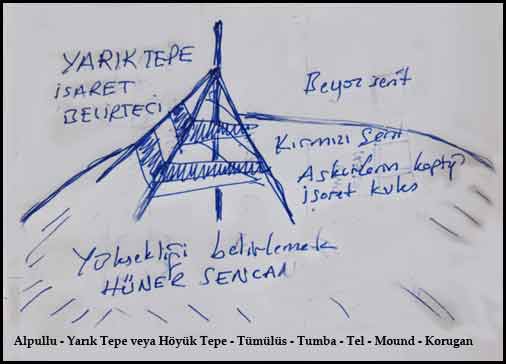 YARIK TEPE
İŞARET
BELİRTECİ
Beyaz şerit
Kırmızı Şerit
Askerlerin
işaret kulesi
Yüksekliği belirlemek
HÜNER SENCAN
Alpullu - Yarık Tepe veya Höyük Tepe - Tümülüs - Tumba - Tel - Mound - Korugan